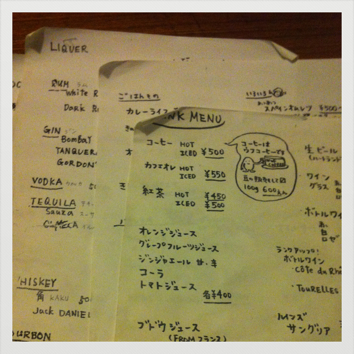 LIQUER
RUM
White R
Dark R
GIN
BOMBAY
TANQUER
GORDON'
VODKA
TEQUILA
Sauza
WHISKEY
角 KAKU
Jack DANIEL
OURBON
ごはんもの
カレーライス
NK MENU
コーヒー HOT ICED ¥500
カフェオレ HOT ICED ¥550
紅茶 HOT ¥450
ICED ¥500
オレンジジュース
グレープフルーツジュース
ジンジャエール 甘・辛
コーラ
トマトジュース
各¥400
ブドウジュース
(FROM フランス)
コーヒーは
100g 600えん
¥500
生ビール
ワイン
グラス
ボトルワイン
赤
白
ロゼ
ランクアップ!
ボトルワイン
Côte du Rh
Tourelles
サングリア